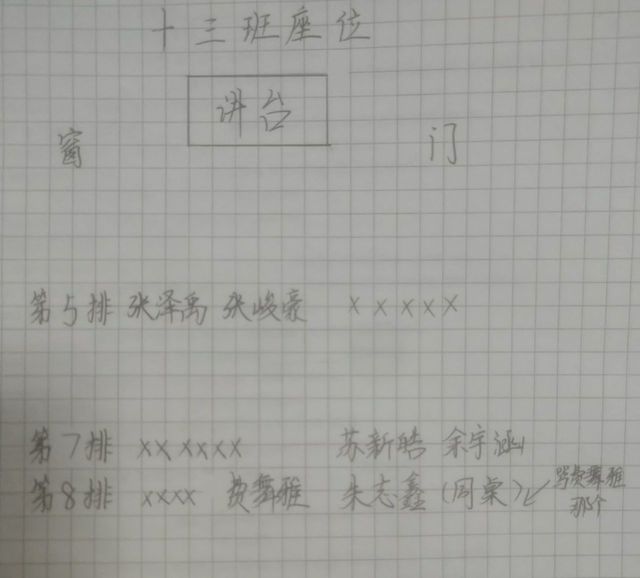 十三班座位
讲台
窗 门
第5排 张泽禹 张峻豪 ×××××
第7排 ×××××× 苏新皓 余宇涵
第8排 ×××× 费舞雅 朱志鑫(同桌)↙骂费舞雅
那个